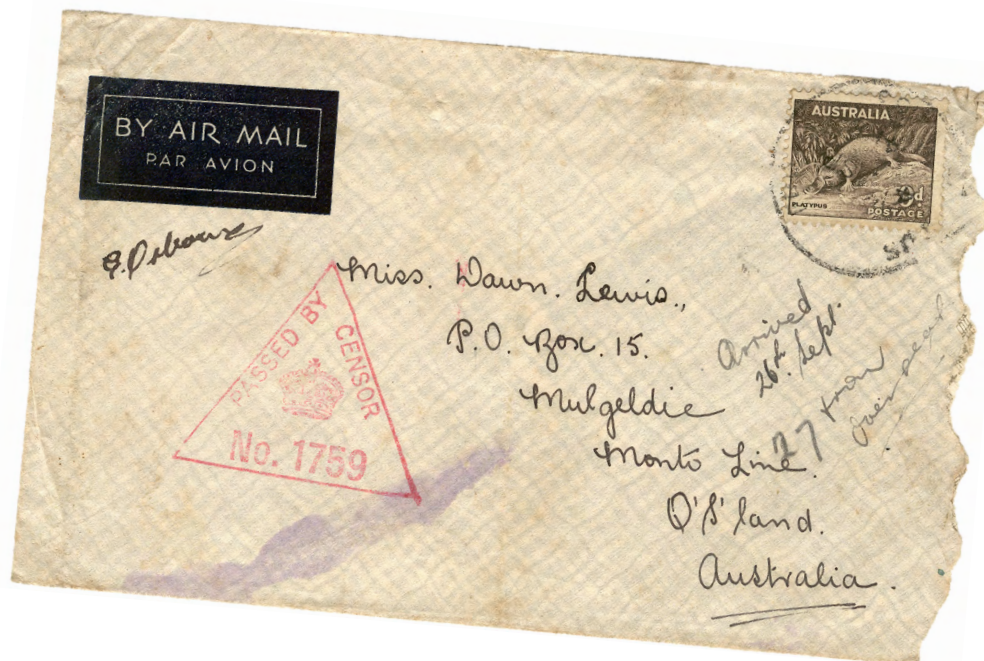 BY AIR MAIL
PAR AVION
AUSTRALIA
PLATYPUS
9d
POSTAGE
SN
PASSED BY CENSOR
No. 1759
Miss. Dawn. Lewis.,
P.O. Box. 15.
Mulgeldie
Monto Line.
Q'S'land.
Australia.
Arrived
26th. Sept.
27 from
Overseas